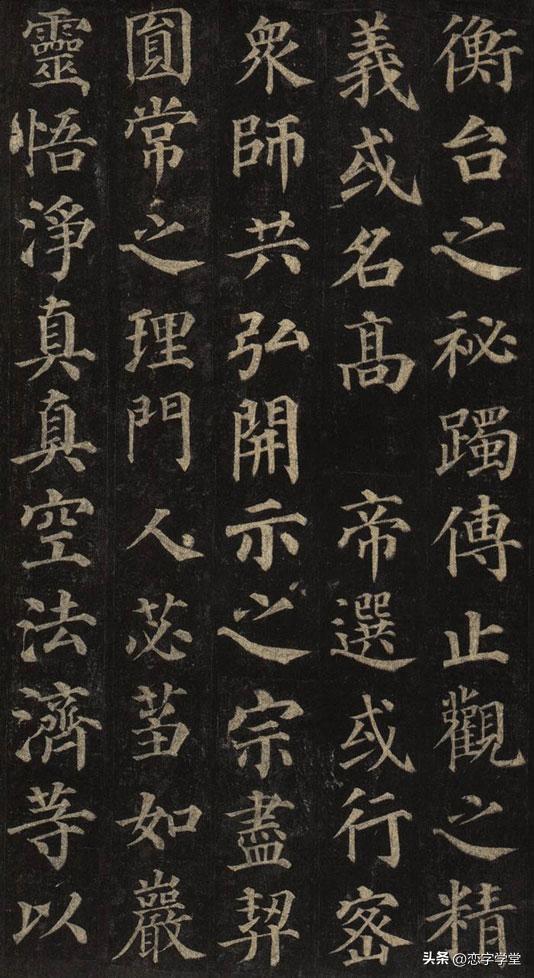 衡台之祕躅傳止觀之精
義或名高　帝選或行密
衆師共弘開示之宗盡契
圎常之理門人苾蒭如巖
靈悟淨真真空法濟等以
头条 @恋字学堂